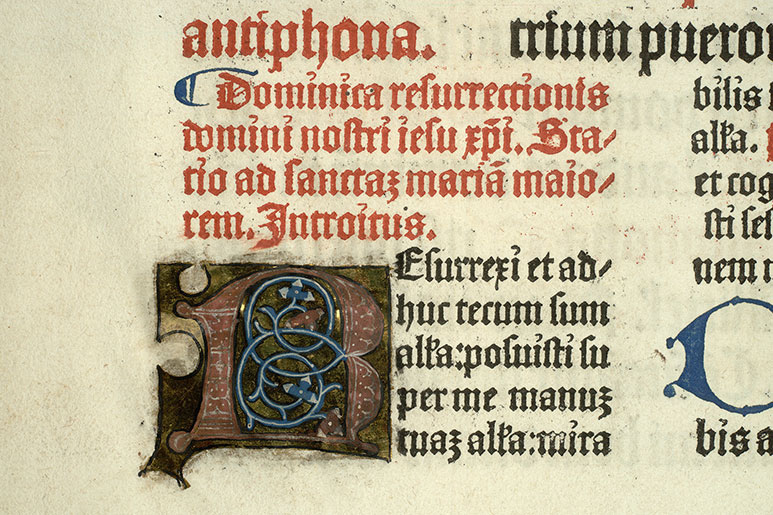 antiphona.
Dominica resurrectionis
domini nostri iesu xp̄i. Sta⸗
tio ad sanctaꝫ mariā maio⸗
rem. Introitus.
REsurrexi et ad⸗
huc tecum sum
alľa: posuisti su
per me manuꝫ
tuaꝫ alľa: mira
trium pueror
bilis
alľa.
et cog
sti ses
nem
bis a